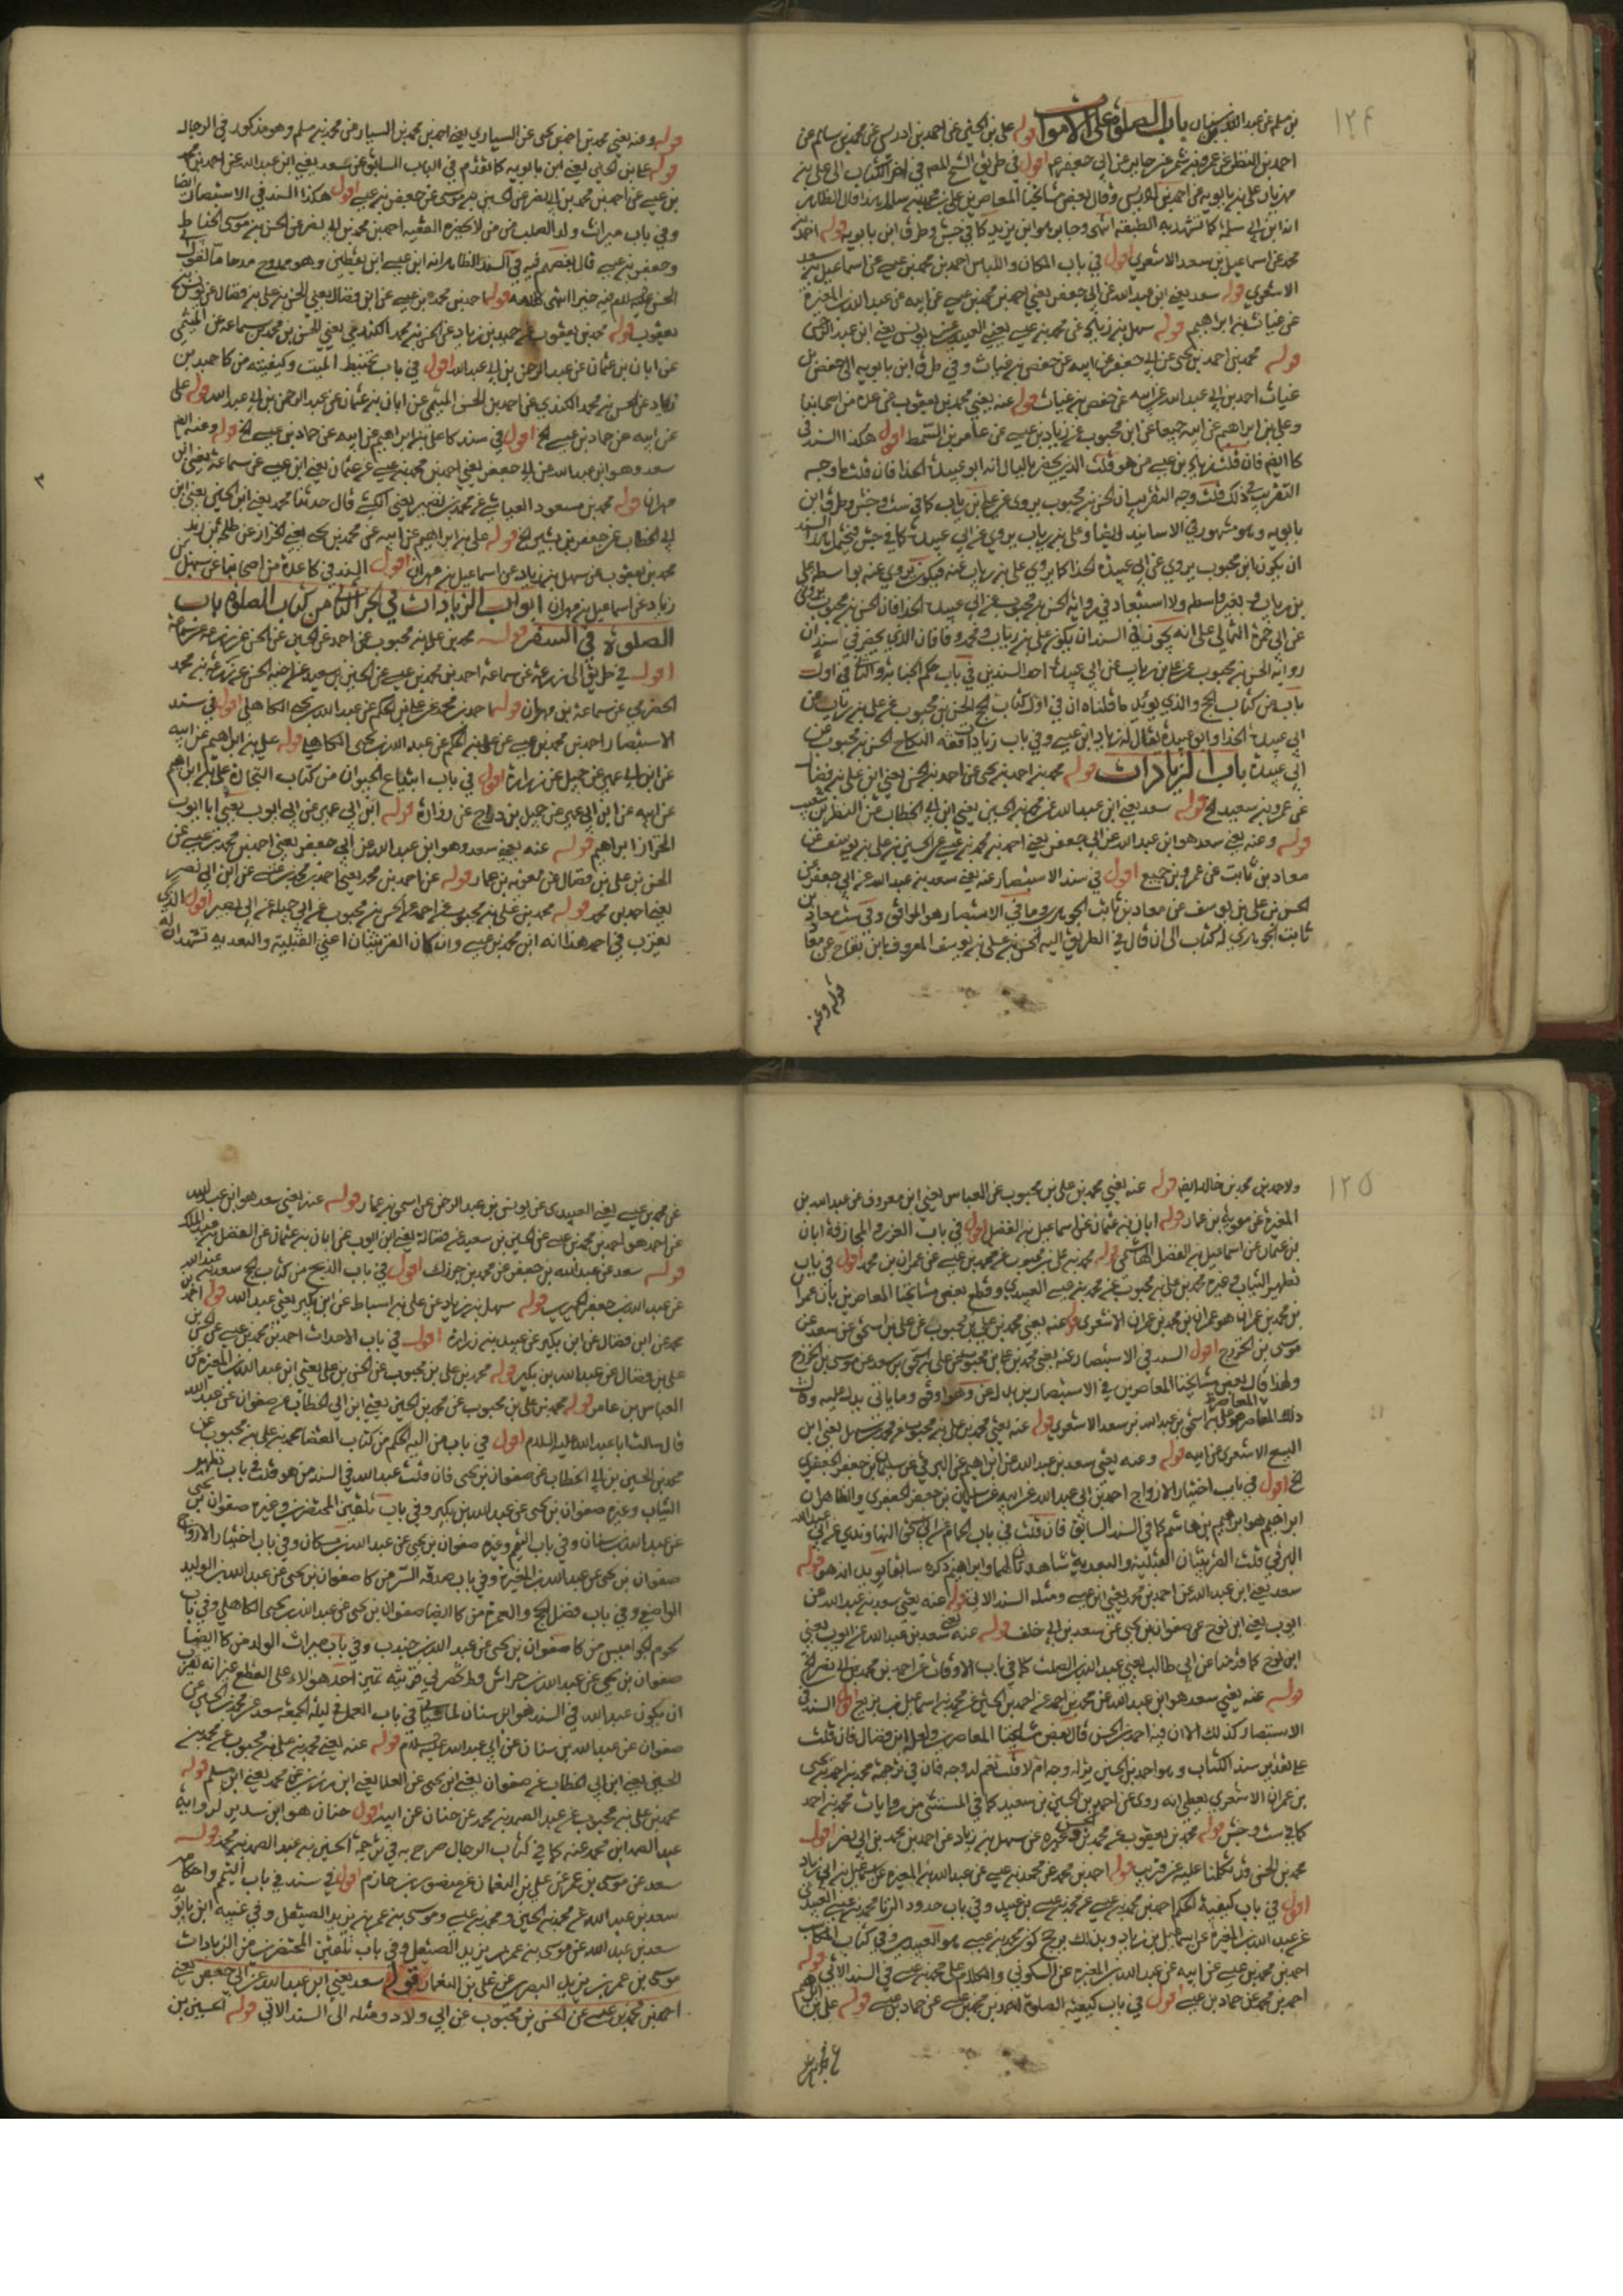 ١٢۴
بن مسلم عن عبد الله بن سنان باب الصلوة على الاموات قوله على بن الحسين عن احمد بن ادريس عن محمد بن سالم عن
احمد بن النضر عن عمرو بن شمر عن جابر عن ابي جعفر ع اقول في طريق الشيخ للمص في اخر الكتاب الى على بن
انه ابن ابي سلمة كما تشهد به الطبقة انتهى وجابر هو ابن يزيد كما في جش وطرق ابن بابويه قوله احمد بن
محمد عن اسماعيل بن سعد الاشعري اقول في باب المكان واللباس احمد بن محمد بن عيسى عن اسماعيل بن سعد
الاشعري قوله سعد يعني ابن عبد الله عن ابي جعفر يعني احمد بن محمد بن عيسى عن ابيه عن عبد الله بن المغيرة
عن غياث بن ابراهيم قوله سهل بن زياد عن محمد بن عيسى يعني العبيدي عن يونس يعني ابن عبد الرحمن
قوله محمد بن احمد بن يحيى عن ابي جعفر عن ابيه عن حفص بن غياث وفي طرق ابن بابويه الى حفص بن
غياث احمد بن ابي عبد الله عن ابيه عن حفص بن غياث قوله عنه يعني محمد بن يعقوب عن عدة من اصحابنا
وعلى بن ابراهيم عن ابيه جميعا عن ابن محبوب عن زياد بن عيسى عن عامر بن السمط اقول هكذا السند في
كا ايضا فان قلت زياد بن عيسى من هو قلت الذي يخطر بالبال انه ابو عبيدة الحذا فان قلت ما وجه
التقريب في ذلك قلت وجه التقريب ان الحسن بن محبوب يروى عن على بن رياب كما في ست وجش وطرق ابن
ان يكون ابن محبوب يروي عن ابي عبيدة الحذا كما يروي على بن رياب عنه فيكون يروي عنه بواسطة على
بن رياب وبغير واسطة ولا استبعاد في رواية الحسن بن محبوب عن ابي عبيدة الحذا فان الحسن بن محبوب يروى
عن ابي حمزة الثمالي على انه يجوز في السند ان يكون على بن رياب محذوفا فان الذي يحضرني سندان
رواية الحسن بن محبوب عن على بن رياب عن ابي عبيدة احد السندين في باب حكم الجنابة والثاني في اول
باب من كتاب الحج والذي يؤيد ما قلناه ان في اول كتاب الحج الحسن بن محبوب عن على بن رياب عن
ابي عبيدة الحذا وابو عبيدة يقال له زياد بن عيسى وفي باب زيادات فقه النكاح الحسن بن محبوب عن
ابي عبيدة باب الزيادات قوله محمد بن احمد بن يحيى عن احمد بن الحسن يعني ابن على بن فضال
عن عمرو بن سعيد الخ قوله سعد يعني ابن عبد الله عن محمد بن الحسين يعني ابن ابي الخطاب عن النضر بن شعيب
قوله وعنه يعني سعد هو ابن عبد الله عن ابي جعفر يعني احمد بن محمد بن عيسى عن الحسن بن على بن يوسف عن
معاذ بن ثابت عن عمرو بن جميع اقول في سند الاستبصار عنه يعني سعد بن عبد الله عن ابي جعفر عن
الحسن بن على بن يوسف عن معاذ بن ثابت الجوهري وما في الاستبصار هو الموافق وفي ست معاذ بن
ثابت الجوهري له كتاب الى ان قال في الطريق اليه الحسن بن على بن يوسف المعروف بابن بقاح عن معاذ
قوله وعنه
قوله وعنه يعني محمد بن احمد بن يحيى عن السياري يعني احمد بن محمد بن السيار عن محمد بن مسلم وهو مذكور في الرجال
قوله على بن الحسين يعني ابن بابويه كما تقدم في الباب السابق عن سعد يعني ابن عبد الله عن احمد بن محمد
بن عيسى عن احمد بن محمد بن ابي نصر عن الحسين بن موسى عن جعفر بن عيسى اقول هكذا السند في الاستبصار ايضا
وفي باب ميراث ولد الصلب من من لا يحضره الفقيه احمد بن محمد بن ابي نصر عن الحسن بن موسى الحناط
وجعفر بن عيسى قال بعضهم فيه في السند الظاهر انه ابن عيسى ابن يقطين وهو ممدوح مدحا ما
يعقوب قوله محمد بن يعقوب عن حميد بن زياد عن الحسن بن محمد الكندي يعني الحسن بن محمد بن سماعة عن الميثمي
عن ابان بن عثمان عن عبد الرحمن بن ابي عبد الله اقول في باب تحنيط الميت وكيفيته من كا حميد بن
زياد عن الحسن بن محمد الكندي عن احمد بن الحسن الميثمي عن ابان بن عثمان عن عبد الرحمن بن ابي عبد الله قوله على
عن ابيه عن حماد بن عيسى الخ اقول في سند كا على بن ابراهيم عن ابيه عن حماد بن عيسى الخ قوله وعنه ايضا
سعد وهو ابن عبد الله عن ابي جعفر يعني احمد بن محمد بن عيسى عن عثمان يعني ابن عيسى عن سماعة يعني ابن
مهران قوله محمد بن مسعود العياشي عن محمد بن نصير يعني الكشي قال حدثنا محمد يعني ابن الحسين يعني ابن
ابي الخطاب عن جعفر بن بشير الخ قوله على بن ابراهيم عن ابيه عن محمد بن يحيى يعني الخزاز عن طلحة بن زيد
محمد بن يعقوب عن سهل بن زياد عن اسماعيل بن مهران اقول السند في كا عدة من اصحابنا عن سهل بن
زياد عن اسماعيل بن مهران ابواب الزيادات في الجزء الثاني من كتاب الصلوة باب
الصلوة في السفر قوله محمد بن على بن محبوب عن احمد عن الحسين عن الحسن عن زرعة عن سماعة
اقول في طريق الى زرعة عن سماعة احمد بن محمد بن عيسى عن الحسين بن سعيد عن اخيه الحسن عن زرعة بن محمد
الحضرمي عن سماعة بن مهران قوله احمد بن محمد عن على بن الحكم عن عبد الله بن يحيى الكاهلي اقول في سند
الاستبصار احمد بن محمد بن عيسى عن على بن الحكم عن عبد الله بن يحيى الكاهلي قوله على بن ابراهيم عن ابيه
عن ابن ابي عمير عن جميل عن زرارة اقول في باب ابتياع الحيوان من كتاب التجارة على بن ابراهيم
عن ابيه عن ابن ابي عمير عن جميل بن دراج عن زرارة قوله ابن ابي عمير عن ابي ايوب يعني ابا ايوب
الخزاز ابراهيم قوله عنه يعني سعد وهو ابن عبد الله عن ابي جعفر يعني احمد بن محمد بن عيسى عن
الحسن بن على بن فضال عن معوية بن عمار قوله عن احمد بن محمد يعني احمد بن محمد بن عيسى عن ابن ابي نصر
يعني احمد بن محمد قوله محمد بن على بن محبوب عن احمد عن الحسن بن محبوب عن ابي جميلة عن ابي بصير اقول الذي
يقرب في احمد هذا انه ابن محمد بن عيسى وان كان القرينتان اعني القبلية والبعدية تشهدان له
١٢۵
ولاحمد بن محمد بن خالد ايضا قوله عنه يعني محمد بن على بن محبوب عن العباس يعني ابن معروف عن عبد الله بن
المغيرة عن معوية بن عمار قوله ابان بن عثمان عن اسماعيل بن الفضل اقول في باب الغرر والمجازفة ابان
بن عثمان عن اسماعيل بن الفضل الهاشمي قوله محمد بن على بن محبوب عن محمد بن عيسى عن عمران بن محمد اقول في باب
تطهير الثياب وغيره محمد بن على بن محبوب عن محمد بن عيسى العبيدي وقطع بعض مشايخنا المعاصرين بان عمران
بن محمد بن عمران هو عمران بن محمد بن عمران الاشعري قوله عنه يعني محمد بن على بن محبوب عن على بن اسحق بن سعد عن
موسى بن الخزرج اقول السند في الاستبصار عنه يعني محمد بن على بن محبوب عن على بن اسحق بن سعد عن موسى بن الخزرج
ولهذا قال بعض مشايخنا المعاصرين في الاستبصار بن بدل عن وهو اوفق وما ياتي يدل عليه
ذلك المعاصر هو على بن اسحق بن عبد الله بن سعد الاشعري قوله عنه يعني محمد بن على بن محبوب عن محمد بن سهل يعني ابن
اليسع الاشعري عن ابيه قوله وعنه يعني سعد بن عبد الله عن ابراهيم عن البرقي عن سليمان بن جعفر الجعفري
الخ اقول في باب اختيار الازواج احمد بن ابي عبد الله عن ابيه عن سليمان بن جعفر الجعفري والظاهر ان
ابراهيم هو ابراهيم بن هاشم كما في السند السابق فان قلت في باب
البرقي قلت القرينتان القبلية والبعدية شاهدتان لهما وابراهيم ذكره سابقا يؤيد انه هو قوله
سعد يعني ابن عبد الله عن احمد بن محمد يعني ابن عيسى ومثله السند الاتي قوله عنه يعني سعد بن عبد الله عن
ايوب يعني ابن نوح عن صفوان بن يحيى عن سعد بن ابي خلف قوله عنه يعني سعد بن عبد الله عن ايوب يعني
ابن نوح كما قدمنا عن ابي طالب يعني عبد الله بن الصلت كما في باب الاوقات عن احمد بن محمد بن ابي نصر الخ
قوله عنه يعني سعد هو ابن عبد الله عن محمد بن احمد عن احمد بن الحسين عن محمد بن اسماعيل بن بزيع اقول السند في
الاستبصار كذلك الا ان فيه احمد بن الحسن قال بعض مشايخنا المعاصرين ولعله ابن فضال فان قلت
على تقدير سند الكتاب وهو احمد بن الحسين يقر له وجه ام لا قلت نعم له وجه فان في ترجمة محمد بن احمد بن يحيى
بن عمران الاشعري يعطي انه روى عن احمد بن الحسين بن سعيد كما في المستثنى من روايات محمد بن احمد
كما في ست وجش قوله محمد بن يعقوب عن محمد بن الحسن وغيره عن سهل بن زياد عن احمد بن محمد بن ابي نصر اقول
محمد بن الحسن وقد تكلمنا عليه عن قريب قوله احمد بن محمد عن محمد بن عيسى عن عبد الله بن المغيرة عن اسماعيل بن ابي زياد
اقول في باب كيفية الحكم احمد بن محمد بن عيسى عن محمد بن عيسى بن عبيد وفي باب حدود الزنا محمد بن عيسى العبيدي
عن عبد الله بن المغيرة عن اسماعيل بن زياد وبذلك يرجح كون محمد بن عيسى هو العبيدي وفي كتاب المكاسب
احمد بن محمد بن عيسى عن ابيه عن عبد الله بن المغيرة عن السكوني والكلام على محمد بن عيسى في السند الاتي قوله
احمد بن محمد عن حماد بن عيسى اقول في باب كيفية الصلوة احمد بن محمد بن عيسى عن حماد بن عيسى قوله على بن ابراهيم
عن محمد بن عيسى
عن محمد بن عيسى يعني العبيدي عن يونس بن عبد الرحمن عن اسحق بن عمار قوله عنه يعني سعد هو ابن عبد الله
عن احمد هو احمد بن محمد بن عيسى عن الحسين بن سعيد عن فضالة يعني ابن ايوب عن ابان بن عثمان عن الفضل بن عبد الملك
قوله سعد عن عبد الله بن جعفر عن محمد بن جزك اقول في باب الذبح من كتاب الحج سعد بن عبد الله
عن عبد الله بن جعفر الحميري قوله سهل بن زياد عن على بن اسباط عن ابن بكير يعني عبد الله قوله احمد بن
محمد عن ابن فضال عن ابن بكير عن عبيد بن زرارة اقول في باب الاحداث احمد بن محمد بن عيسى عن الحسن بن
على بن فضال عن عبد الله بن بكير قوله محمد بن على بن محبوب عن الحسن بن على يعني ابن عبد الله بن المغيرة عن
العباس بن عامر قوله محمد بن على بن محبوب عن محمد بن الحسين يعني ابن ابي الخطاب عن صفوان عن عبد الله
قال سالت ابا عبد الله عليه السلام اقول في باب من اليه الحكم من كتاب القضا محمد بن على بن محبوب عن
محمد بن الحسين بن ابي الخطاب عن صفوان بن يحيى فان قلت عبد الله في السند من هو قلت في باب تطهير
الثياب وغيره صفوان بن يحيى عن عبد الله بن بكير وفي باب تلقين المحتضرين وغيره صفوان بن يحيى
عن عبد الله بن سنان وفي باب التيمم وغيره صفوان بن يحيى عن عبد الله بن مسكان وفي باب اختيار الازواج
صفوان بن يحيى عن عبد الله بن المغيرة وفي باب صدقة السر من كا صفوان بن يحيى عن عبد الله بن الوليد
الوصافي وفي باب فضل الحج والعمرة من كا ايضا صفوان بن يحيى عن عبد الله بن يحيى الكاهلي وفي باب
لحوم الجواميس من كا صفوان بن يحيى عن عبد الله بن جندب وفي باب ميراث الولد من كا ايضا
صفوان بن يحيى عن عبد الله بن خراش ولم تحضر لي قرينة تعين احد هؤلاء على القطع غير انه يقرب
ان يكون عبد الله في السند هو ابن سنان لما سيأتي في باب العمل في ليلة الجمعة سعد عن محمد بن الحسين عن
صفوان عن عبد الله بن سنان عن ابي عبد الله عليه السلام قوله عنه يعني محمد بن على بن محبوب عن محمد بن
الحسين يعني ابن ابي الخطاب عن صفوان يعني ابن يحيى عن العلا يعني ابن رزين عن محمد يعني ابن مسلم قوله
محمد بن على بن محبوب عن عبد الصمد بن محمد عن حنان عن ابيه اقول حنان هو ابن سدير لرواية
عبد الصمد بن محمد عنه كما في كتاب الرجال صرح به في ترجمة الحسين بن عبد الصمد بن محمد قوله
سعد عن موسى بن عمر عن على بن النعمان عن منصور بن حازم اقول في سند في باب التيمم واحكامه
سعد بن عبد الله عن محمد بن الحسين ومحمد بن عيسى وموسى بن عمر بن يزيد الصيقل وفي غنية ابن بابويه
سعد بن عبد الله عن موسى بن عمر بن يزيد الصيقل وفي باب تلقين المحتضرين من الزيادات
موسى بن عمر بن يزيد البصري عن على بن النعمان قوله سعد يعني ابن عبد الله عن ابي جعفر يعني
احمد بن محمد بن عيسى عن الحسن بن محبوب عن ابي ولاد ومثله الى السند الاتي قوله الحسين بن